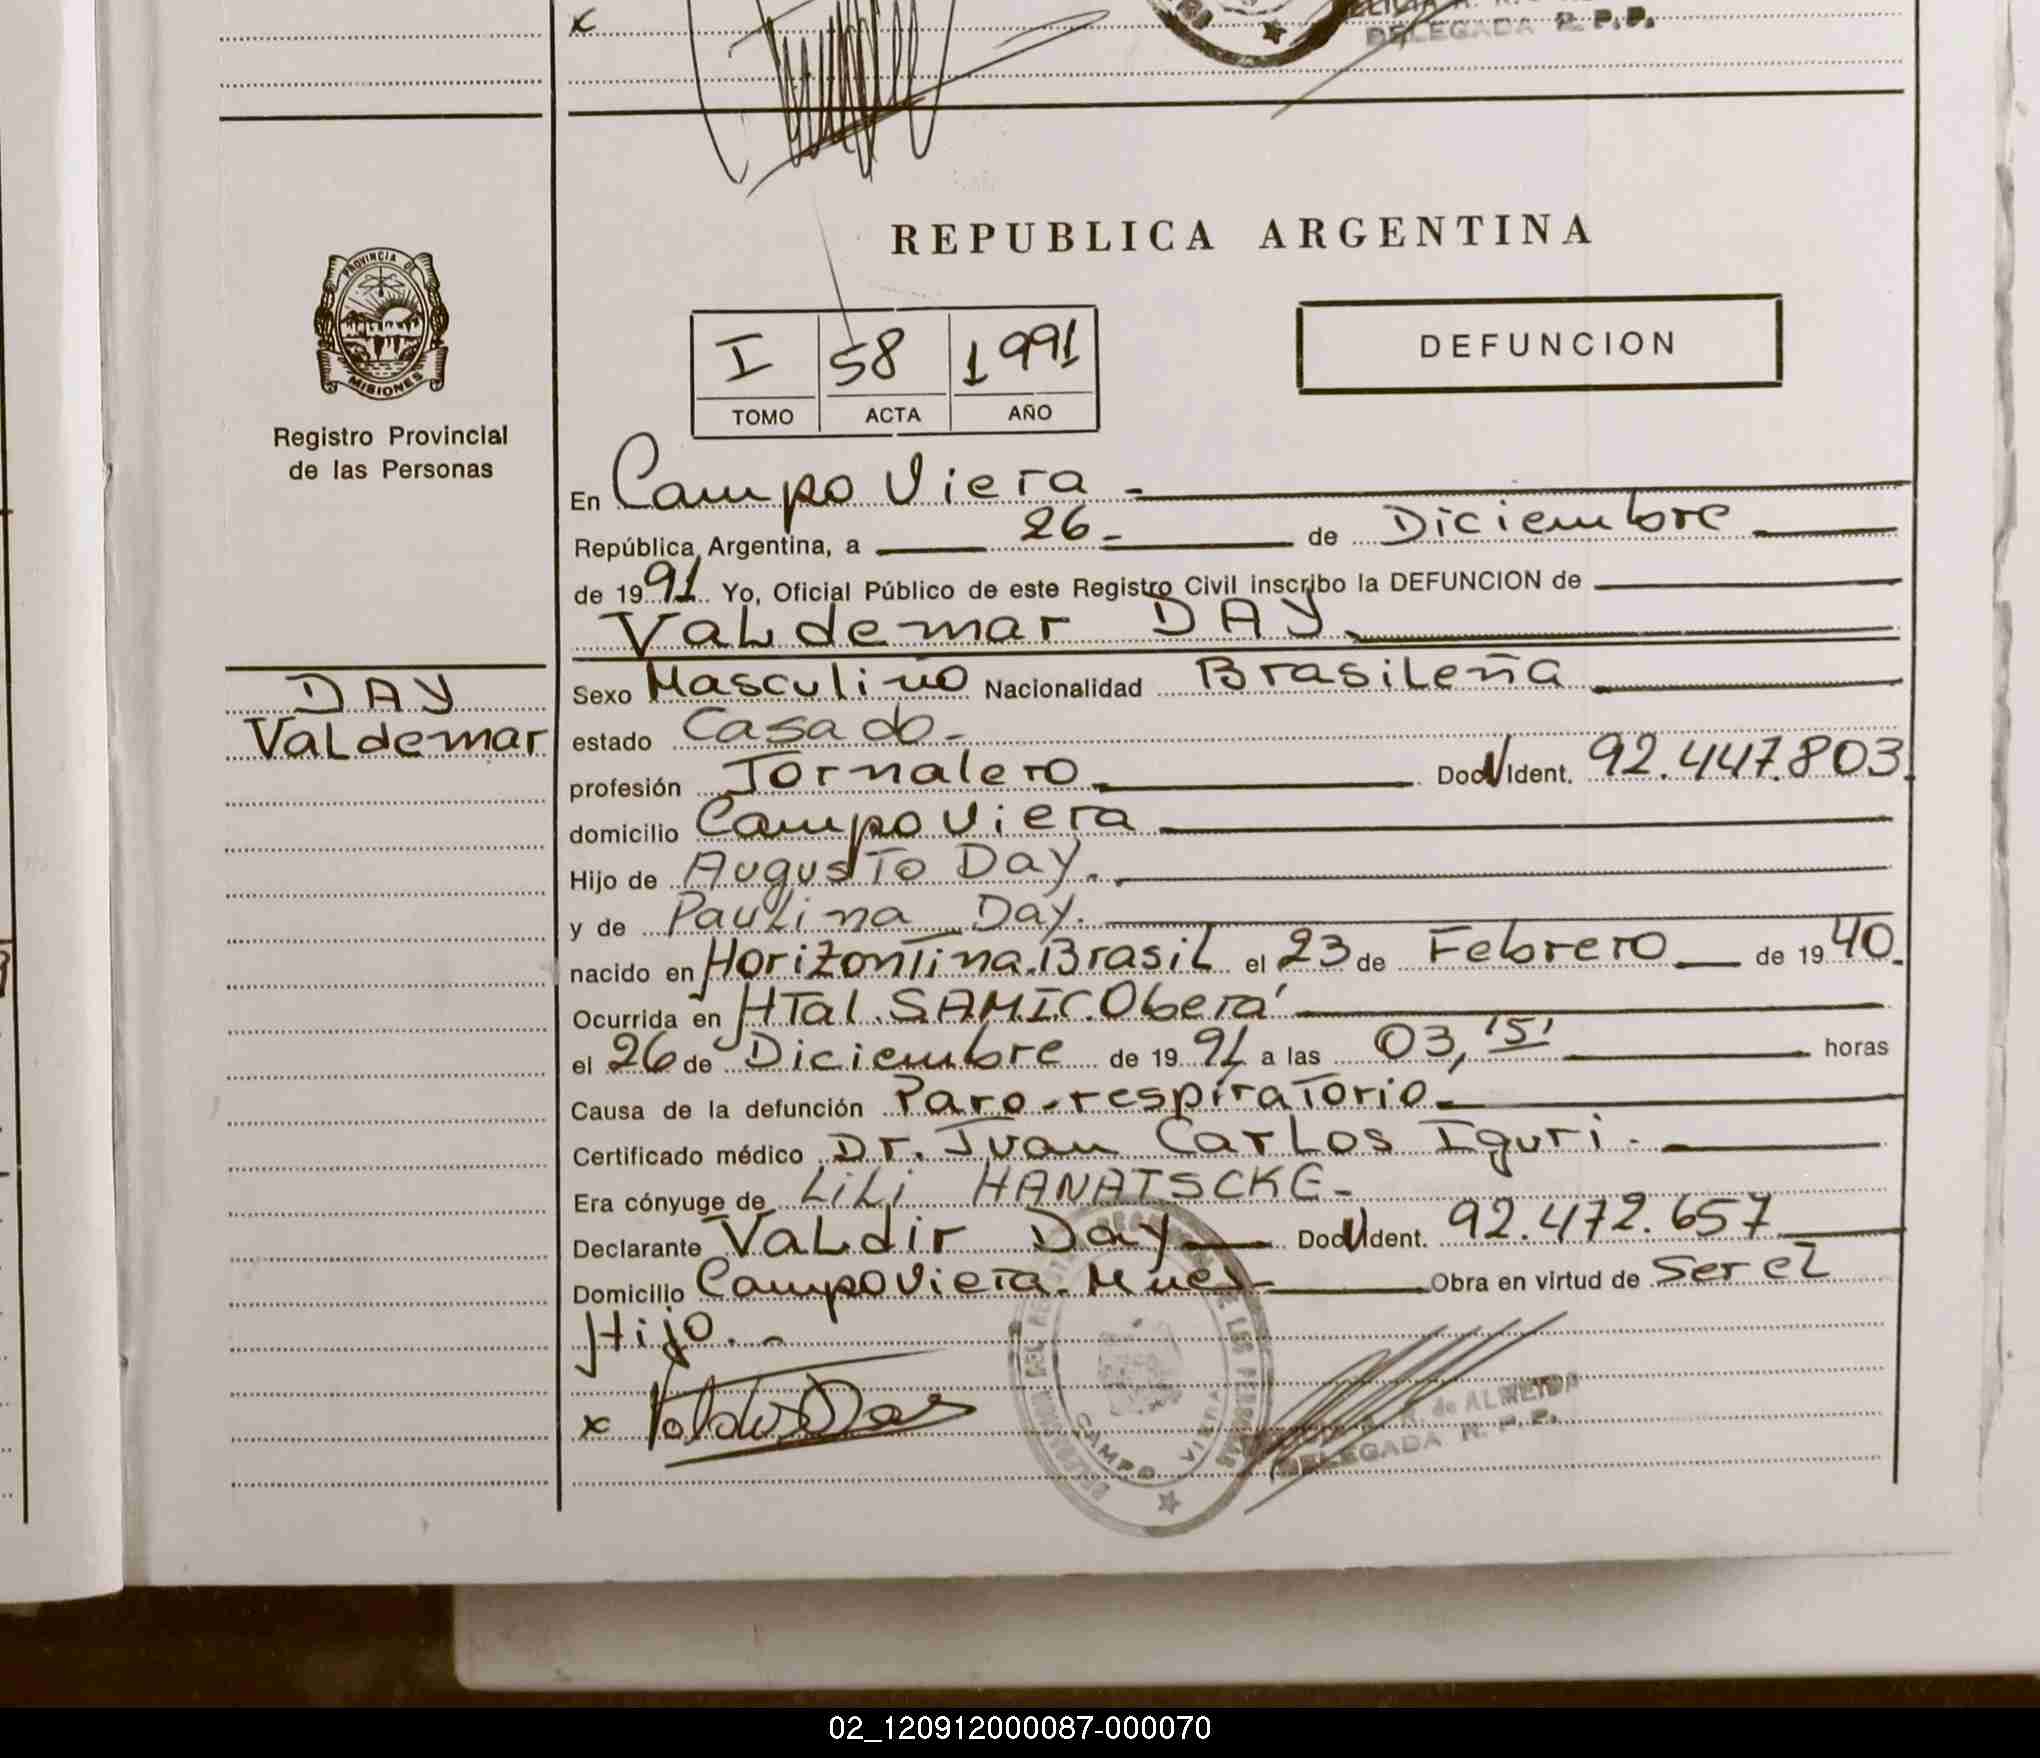 x
DELEGADA R. P. P.
REPUBLICA ARGENTINA
PROVINCIA DE
MISIONES
Registro Provincial
de las Personas
I 58 1991
TOMO ACTA AÑO
DEFUNCION
En Campo Viera -
República Argentina, a 26- de Diciembre
de 1991 Yo, Oficial Público de este Registro Civil inscribo la DEFUNCION de
Valdemar DAY
DAY
Valdemar
Sexo Masculino Nacionalidad Brasileña
estado Casado-
profesión Jornalero Doc N Ident. 92.447.803
domicilio Campo Viera
Hijo de Augusto Day.
y de Paulina Day.
nacido en Horizontina.Brasil el 23 de Febrero de 1940
Ocurrida en HTal. SAMIC.Oberá
el 26 de Diciembre de 1991 a las 03,15' horas
Causa de la defunción Paro-respiratorio
Certificado médico Dr. Juan Carlos Iguri.
Era cónyuge de LiLi HANATSCKE-
Declarante Valdir Day Doc N Ident. 92.472.657
Domicilio Campo Viera. Mnes- Obra en virtud de Ser el
Hijo.-
x Valdir Day
CAMPO VIERA
de ALMEIDA
DELEGADA R. P. P.
02_120912000087-000070